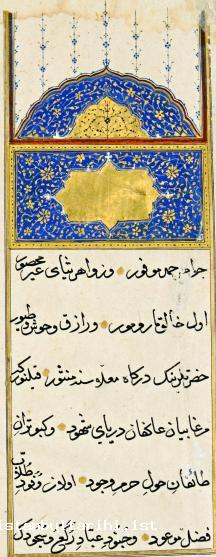 جواهر حمد موفور و زواهر ثنای غیر محصور
اول خالق مار و مور و رازق وحوش و طیور
حضرتلرینك درکاه معلاسنه منثور قلنور که
مرغابیان عاکفان دریای شهود و کبوتران
طائفان حول حرم وجود اولان وفود
فضل نوعود و جنود عباد رکع و سجود